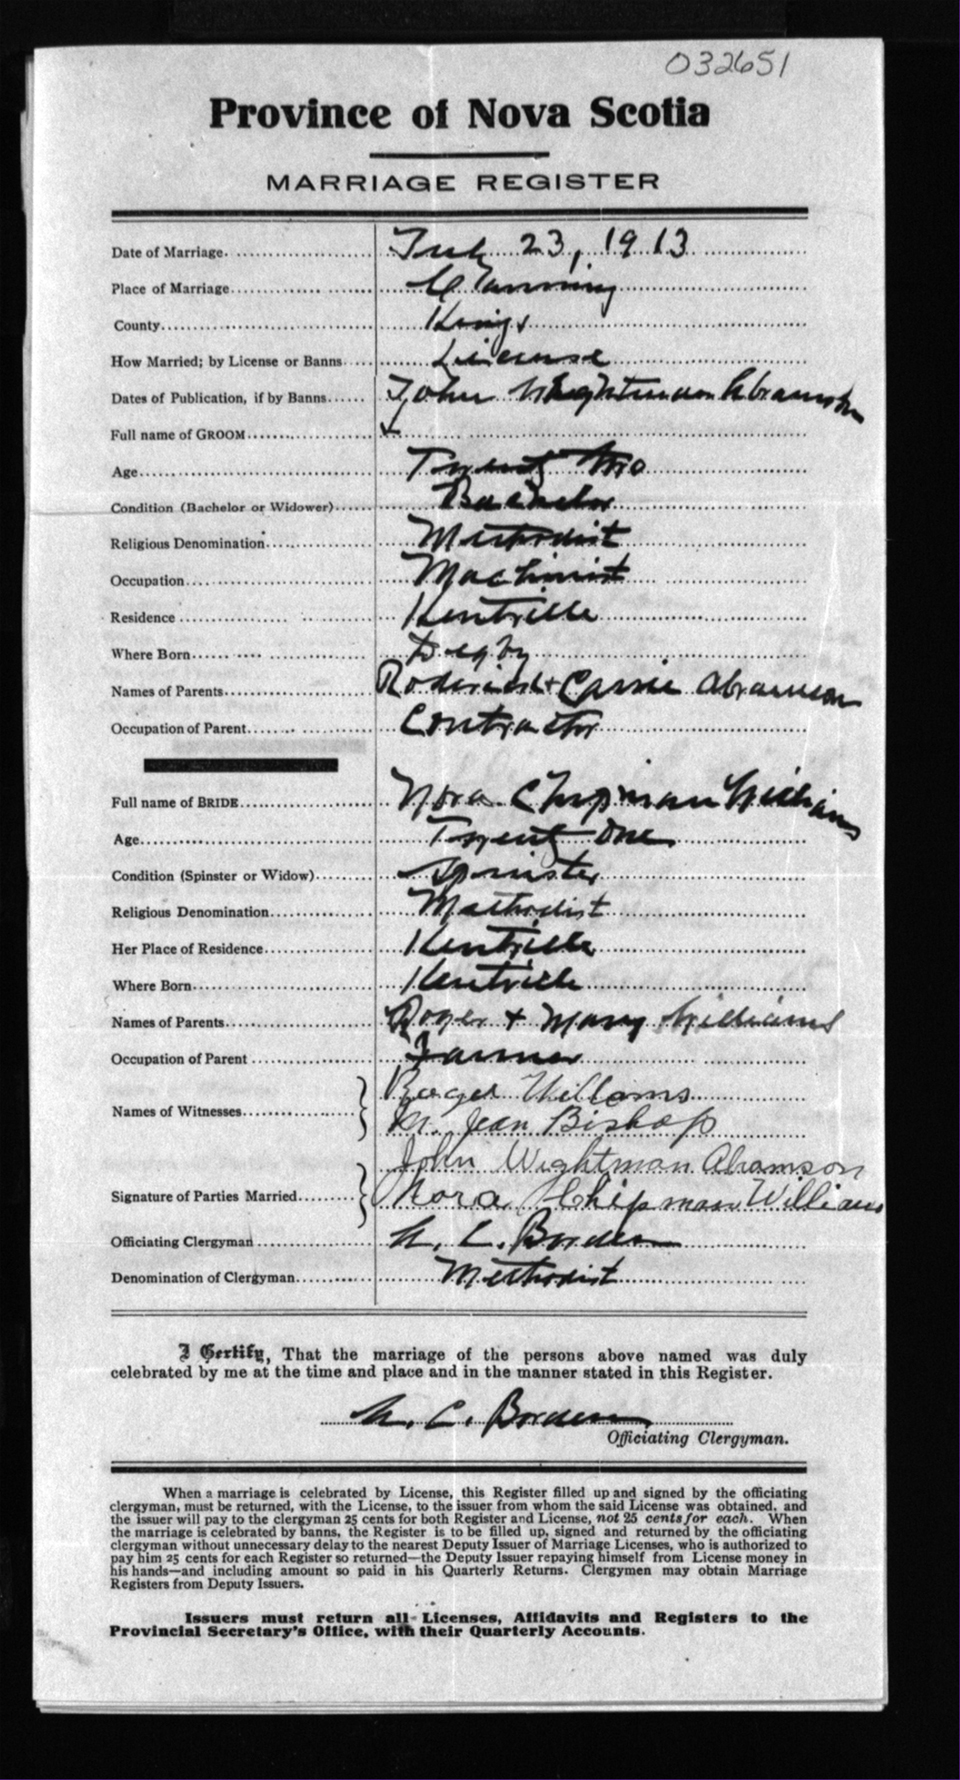 032651
Province of Nova Scotia
MARRIAGE REGISTER
Date of Marriage. July 23, 1913
Place of Marriage. Canning
County. Kings
How Married; by License or Banns License
Dates of Publication, if by Banns. John Wightman Abramson
Full name of GROOM
Age. Twenty two
Condition (Bachelor or Widower). Bachelor
Religious Denomination. Methodist
Occupation. Machinist
Residence Kentville
Where Born. Digby
Names of Parents. Roderick + Carrie Abramson
Occupation of Parent. Contractor
Full name of BRIDE. Nora Chipman Williams
Age. Twenty one
Condition (Spinster or Widow). Spinster
Religious Denomination. Methodist
Her Place of Residence. Kentville
Where Born. Kentville
Names of Parents. Roger + Mary Williams
Occupation of Parent Farmer
Names of Witnesses. Roger Williams
M. Jean Bishop
Signature of Parties Married. John Wightman Abramson
Nora Chipman Williams
Officiating Clergyman A. C. Borden
Denomination of Clergyman. Methodist
I Certify, That the marriage of the persons above named was duly
celebrated by me at the time and place and in the manner stated in this Register.
A. C. Borden
Officiating Clergyman.
When a marriage is celebrated by License, this Register filled up and signed by the officiating
clergyman, must be returned, with the License, to the issuer from whom the said License was obtained, and
the issuer will pay to the clergyman 25 cents for both Register and License, not 25 cents for each. When
the marriage is celebrated by banns, the Register is to be filled up, signed and returned by the officiating
clergyman without unnecessary delay to the nearest Deputy Issuer of Marriage Licenses, who is authorized to
pay him 25 cents for each Register so returned—the Deputy Issuer repaying himself from License money in
his hands—and including amount so paid in his Quarterly Returns. Clergymen may obtain Marriage
Registers from Deputy Issuers.
Issuers must return all Licenses, Affidavits and Registers to the
Provincial Secretary's Office, with their Quarterly Accounts.